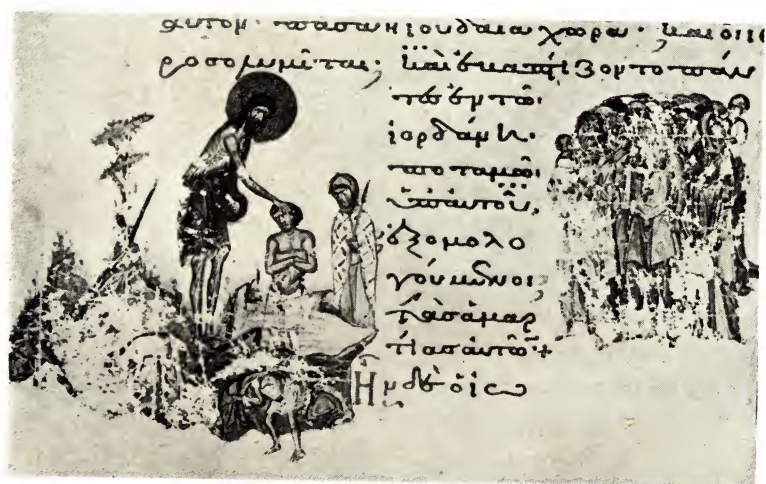 αυτον· πασα η ιουδαια χωρα· και οι ιε
ροσολυμῖται· και ἐβαπτίζοντο πάν
τες ἐν τῶ
ἰορδάνη
ποταμῶ
ὑπ' αυτοῦ,
ἐξομολο
γούμενοι
τὰσ ἁμαρ
τίασ αὐτῶν+
Ἦν δὲ ὁ ἰω